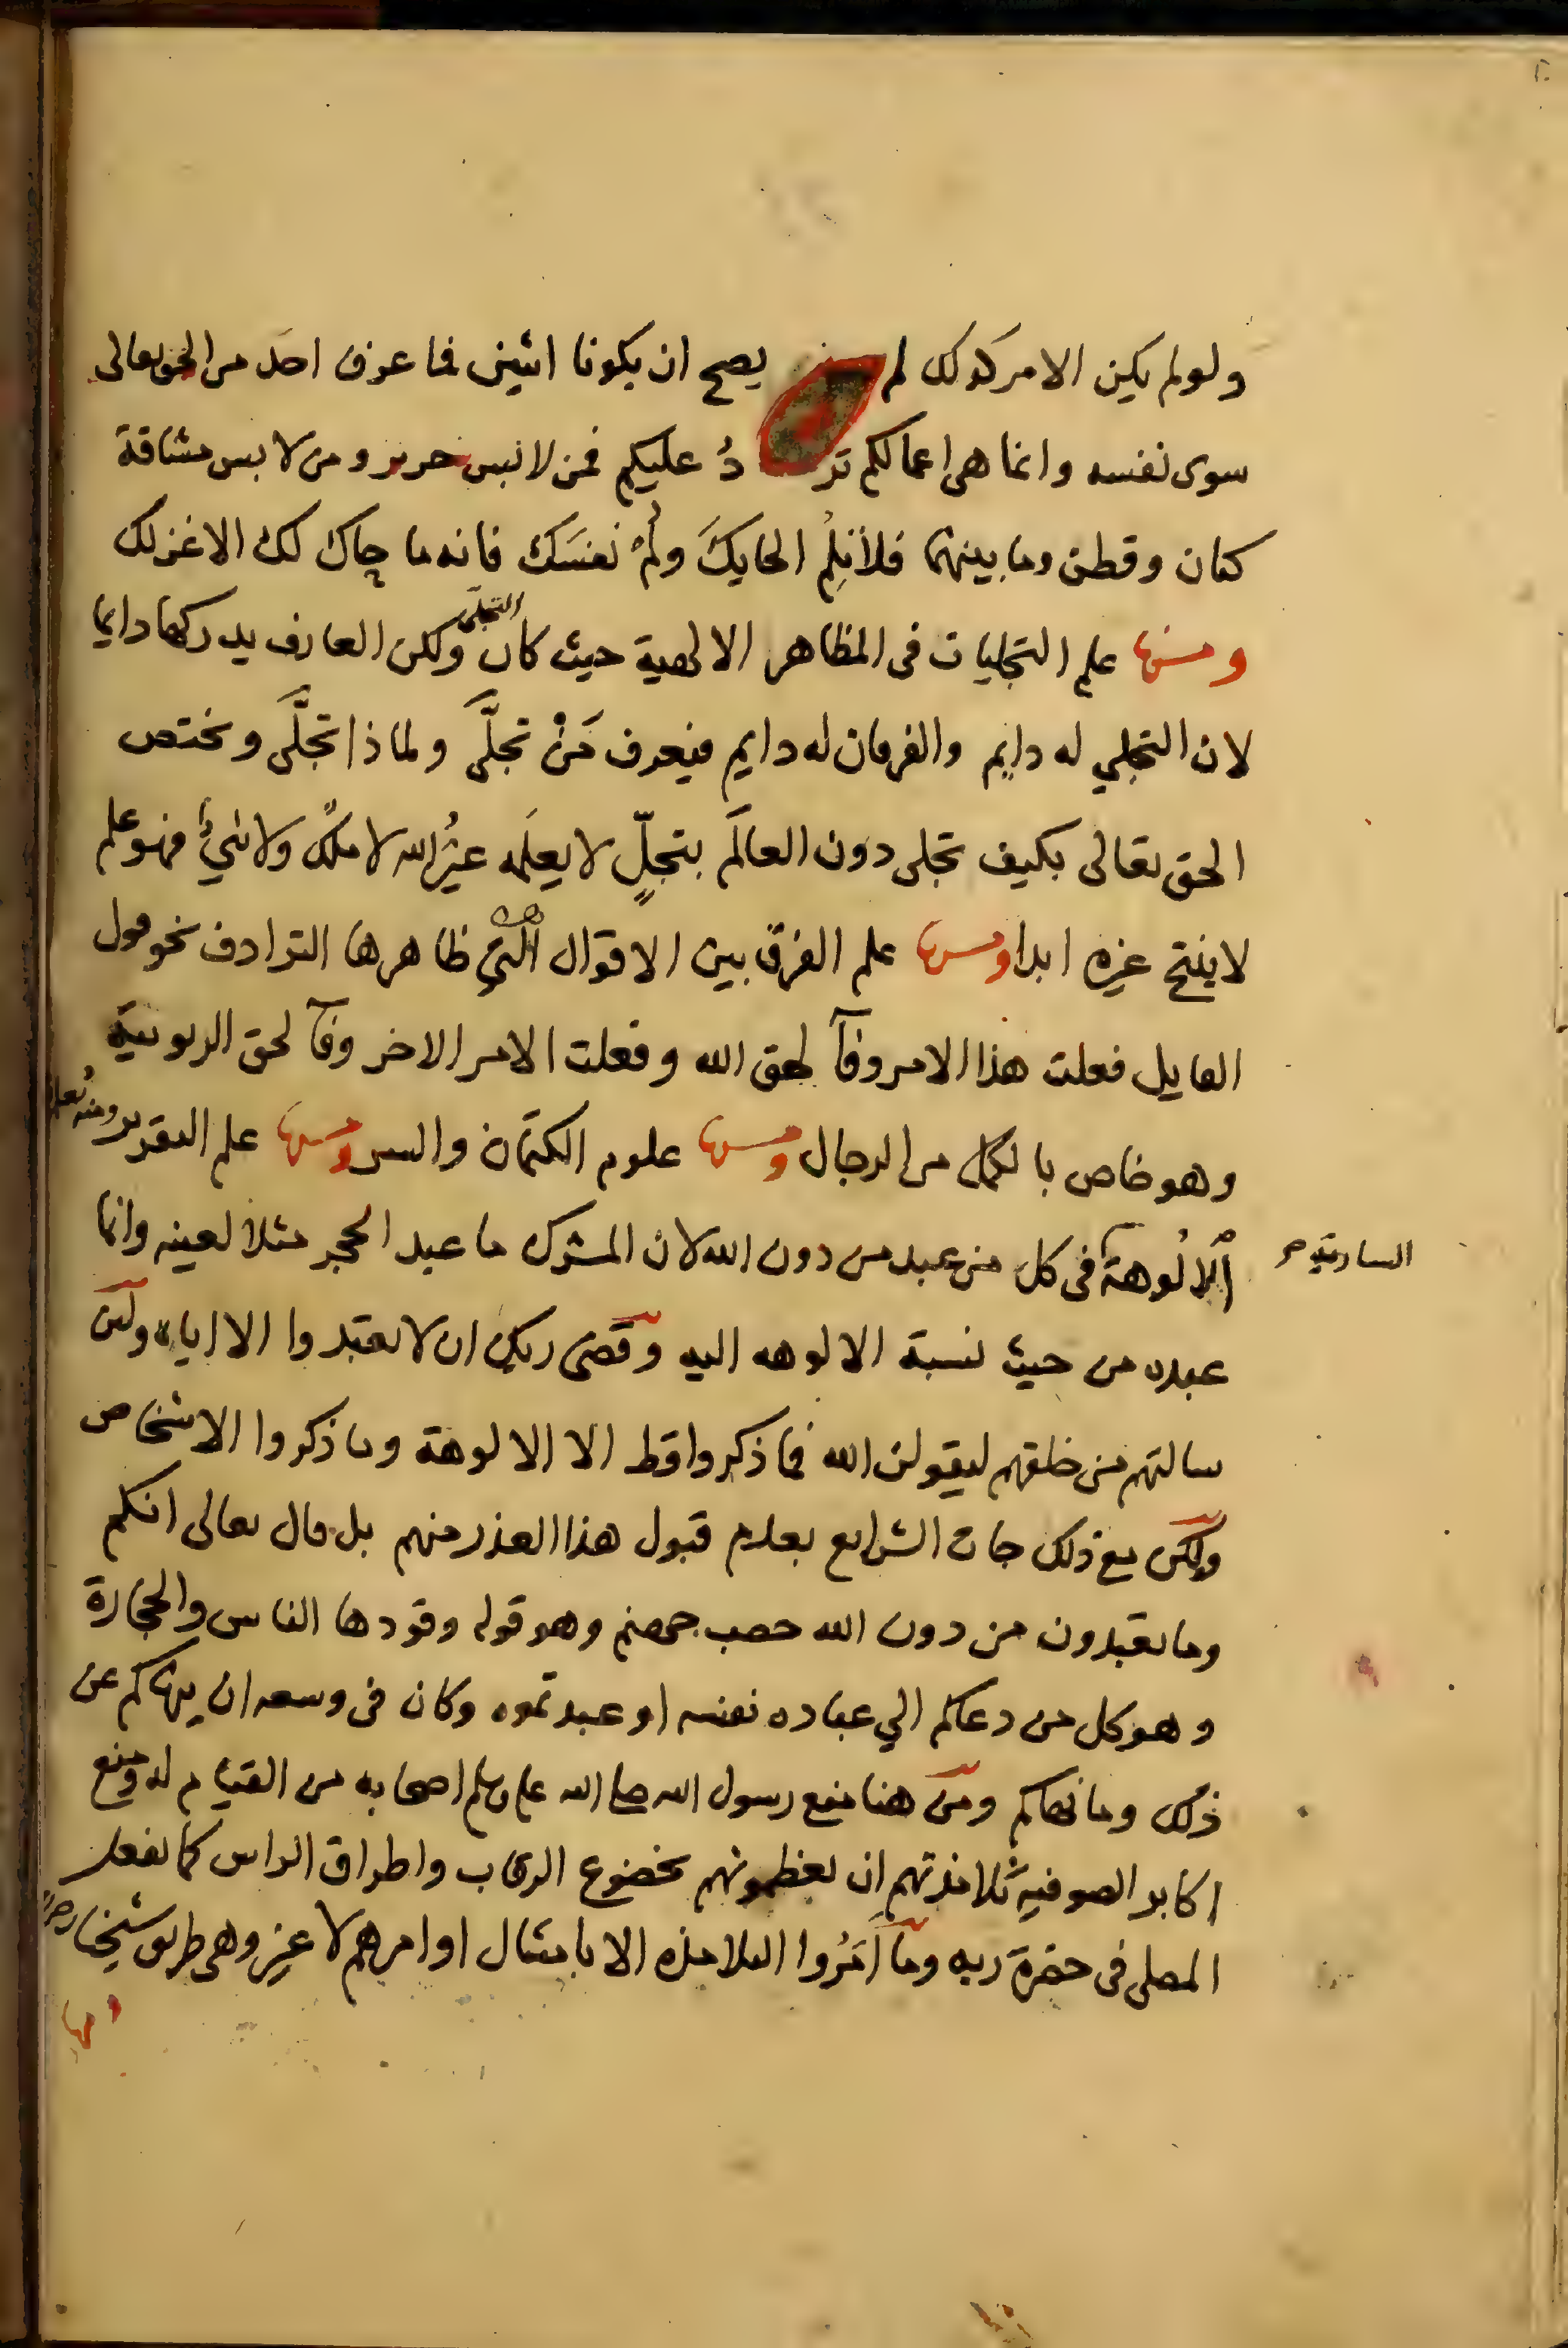 ولو لم يكن الامر كذلك لم يصح ان يكونا اثنين فما عرف احد من الحق تعالى
سوى نفسه وانما هى اعمالكم ترد عليكم فمن لابس حرير ومن لابس مشاقة
كتان وقطن وما بينهما فلا تلم الحايكَ ولُمْ نفسَك فانه ما حاك لك الا غزلك
ومنها علم التجليات فى المظاهر الالهية حيث كان التجلى ولكن العارف يدركها دايما
لان التجلي له دايم والفرقان له دايم فيعرف مَنْ تجلَّى ولماذا تجلَّى ويختص
الحق تعالى بكيف تجلى دون العالَم بتجلٍّ لا يعلَمه غيرُ الله لا ملكٌ ولا نبيٌ فهو علم
لا ينتج غيره ابدا ومنها علم الفرق بين الاقوال التي ظاهرها الترادف نحو قول
القايل فعلت هذا الامر وفآ لحق الله وفعلت الامر الاخر وفآ لحق الربوبية
وهو خاص بالكمل من الرجال ومنها علوم الكتمان والسر ومنها علم التقرير ومنه
السارية
الالُوهة فى كل من عبد من دون الله لان المشرك ما عبد الحجر مثلا لعينه وانما
عبده من حيث نسبة الالوهه اليه وقضى ربك ان لا تعبدوا الا اياه ولئن
سالتهم من خلقهم ليقولن الله فما ذكروا قط الا الالوهة وما ذكروا الاشخاص
ولكن مع ذلك جات الشرايع بعدم قبول هذا العذر منهم بل قال تعالى انكم
وما تعبدون من دون الله حصب جهنم وهو قوله وقودها الناس والحجارة
وهو كل من دعاكم الي عباده نفسه او عبدتموه وكان فى وسعه ان ينهاكم عن
ذلك وما نهاكم ومن هنا منع رسول الله صلى الله عليه وسلم اصحابه من القيام له ومنع
اكابر الصوفيه تلامذتهم ان يعظمونهم بخضوع الرقاب واطراق الراس كما يفعل
المصلى فى حضرة ربه وما اَمَرُوا التلامذه الا بامتثال اوامرهم لا غير وهى طريق شيخنا
ومنها